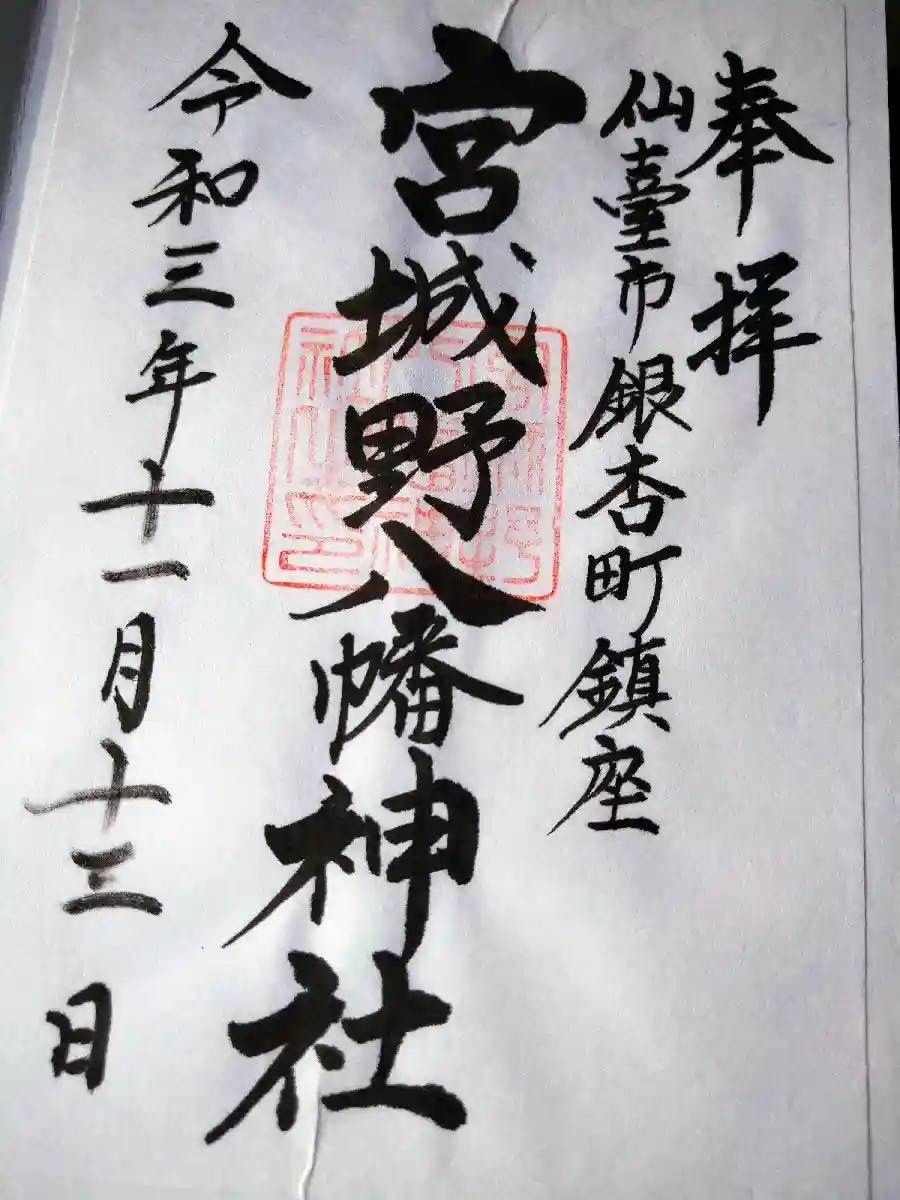 奉拝
仙臺市銀杏町鎮座
宮城野八幡神社
令和三年十一月十三日